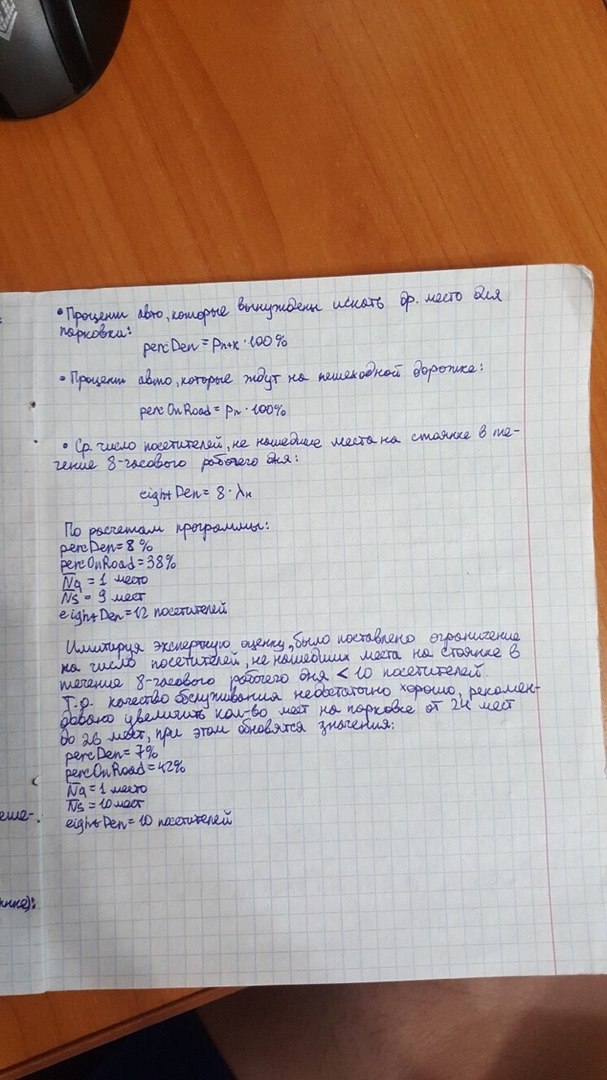 • Процент авто, которые вынуждены искать др. место для
парковки:
percDen = Pn+k · 100%
• Процент авто, которые ждут на пешеходной дорожке:
percOnRoad = Pn · 100%
• Ср. число посетителей, не нашедшие места на стоянке в те-
чение 8-часового рабочего дня:
eightDen = 8 · λн
По расчетам программы:
percDen = 8 %
percOnRoad = 38%
Nq = 1 место
Ns = 9 мест
eightDen = 12 посетителей
Имитируя экспертную оценку, было поставлено ограничение
на число посетителей, не нашедших места на стоянке в
течение 8-часового рабочего дня < 10 посетителей
Т.о. качество обслуживания недостаточно хорошо, рекомен-
довано увеличить кол-во мест на парковке от 24 мест
до 26 мест, при этом обновятся значения:
percDen = 7%
percOnRoad = 42%
Nq = 1 место
Ns = 10 мест
eightDen = 10 посетителей